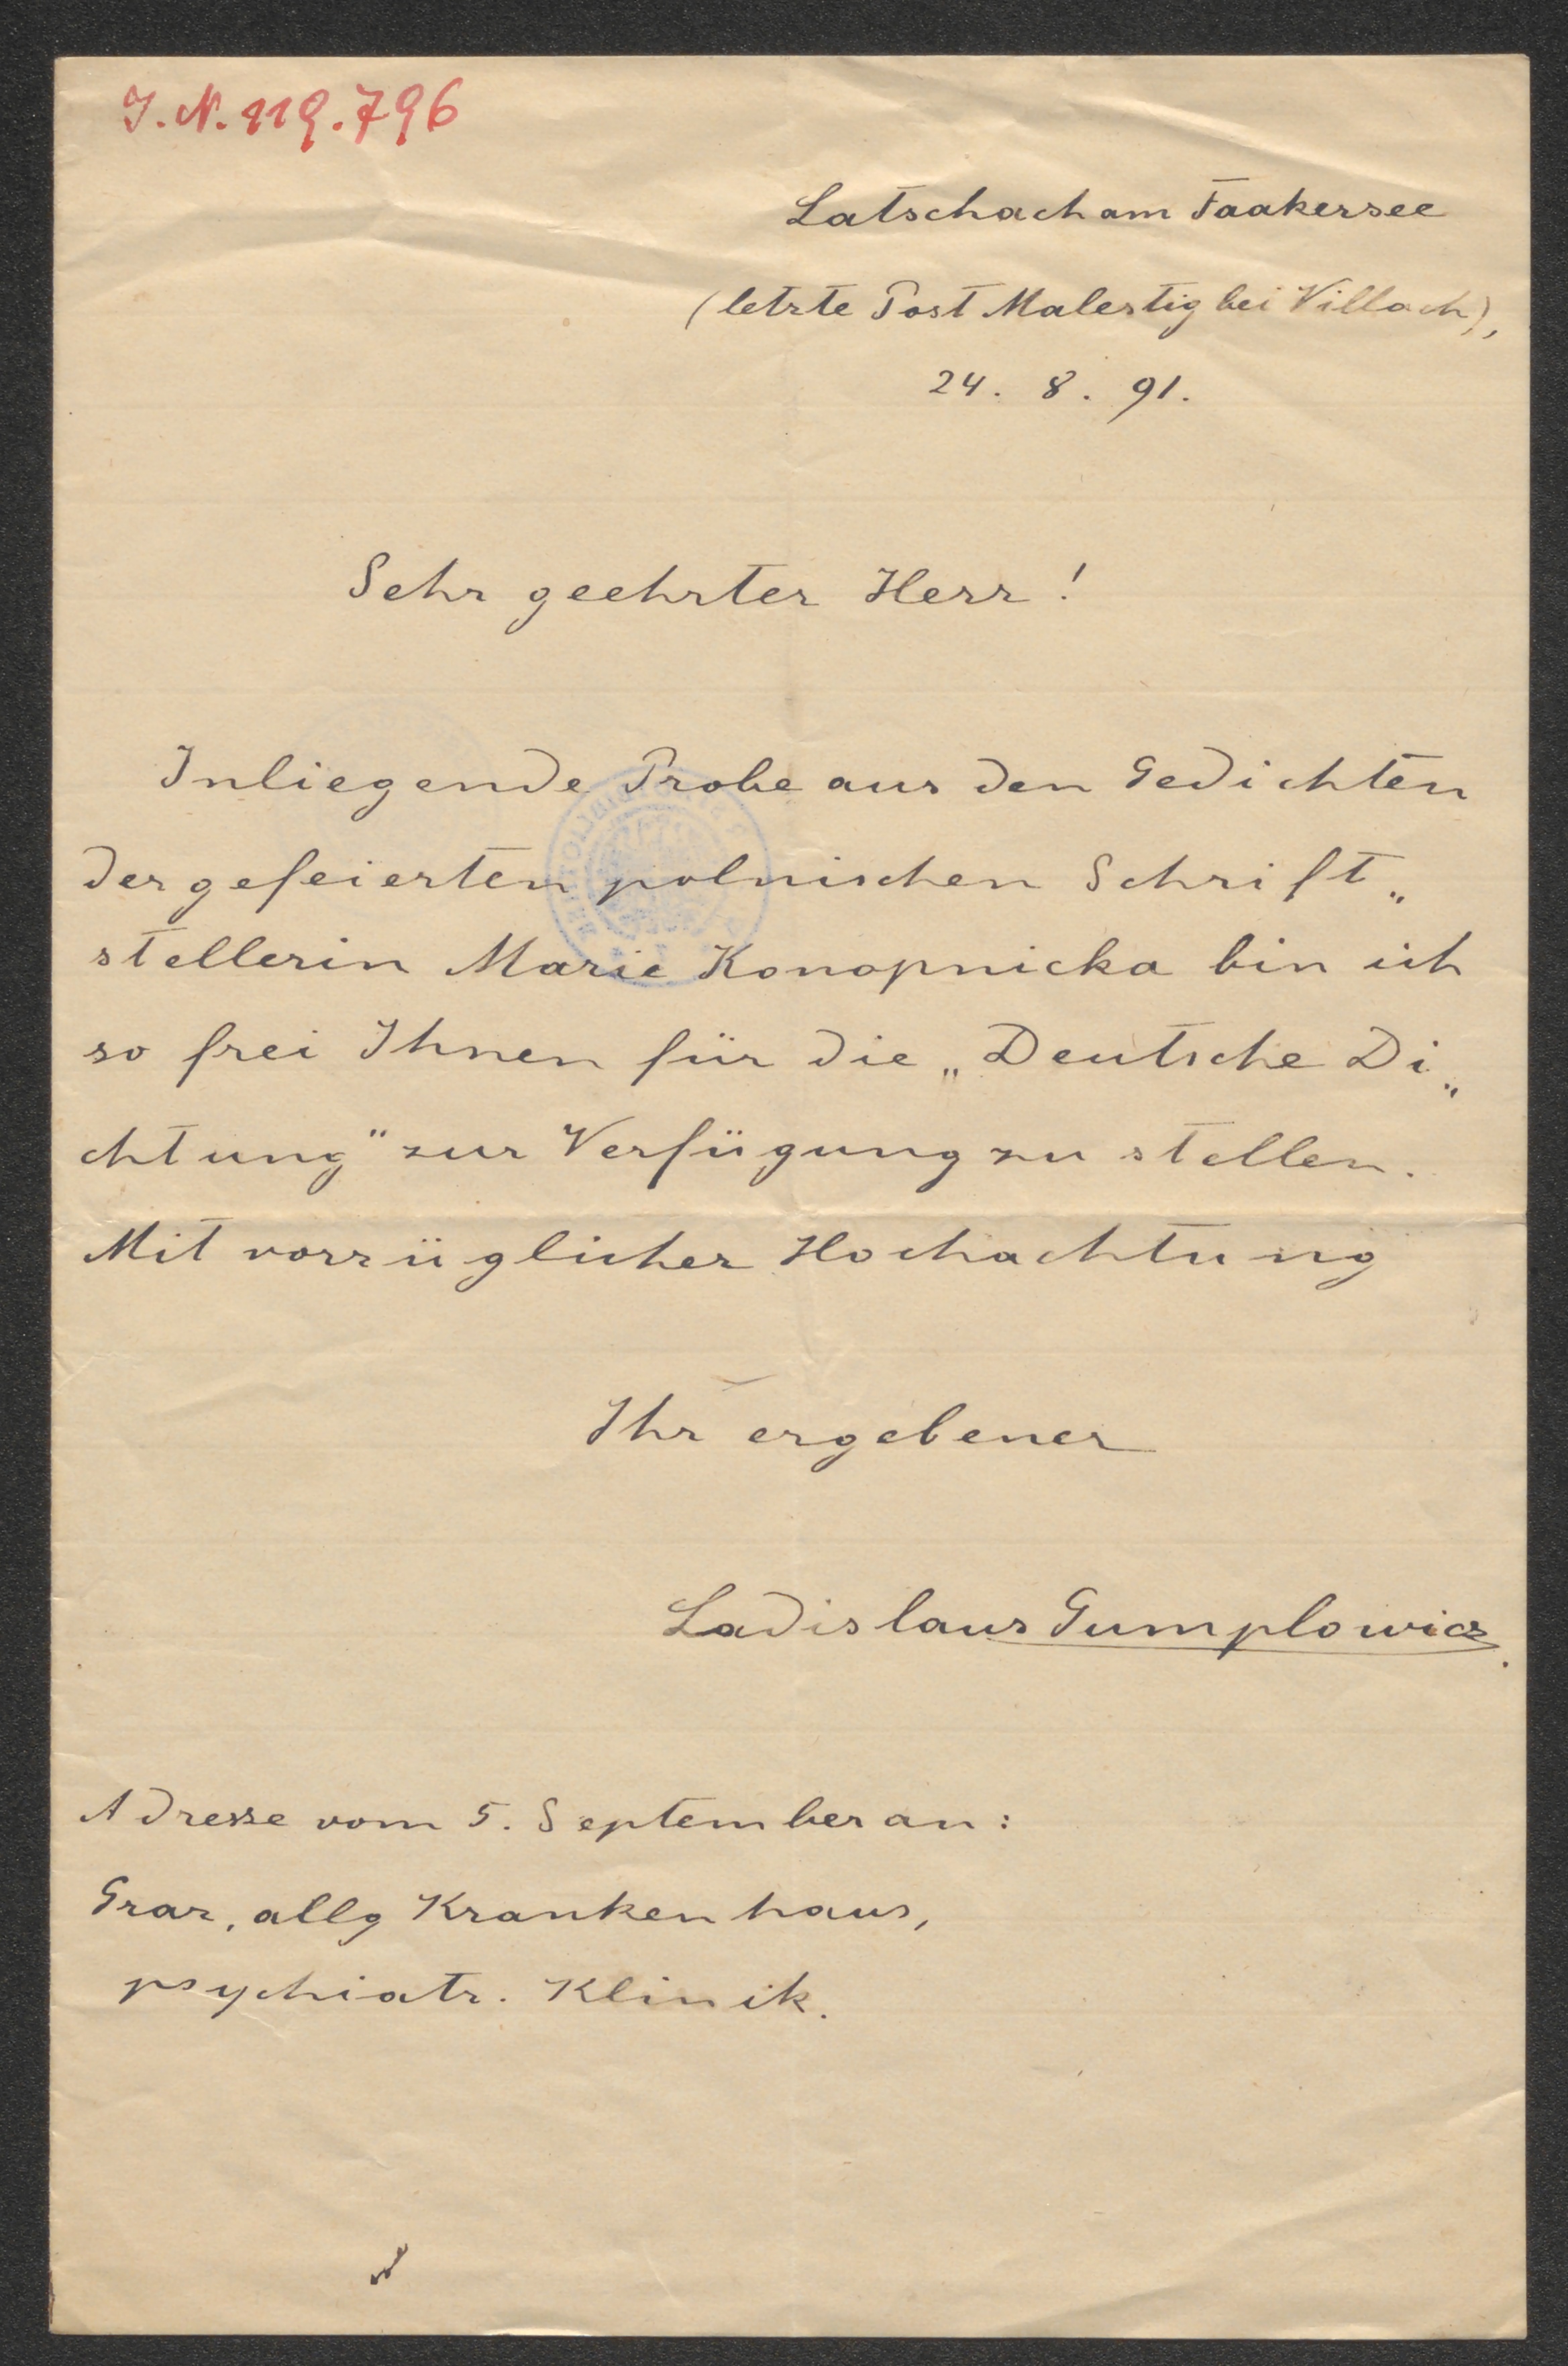 J. N. 119.796
Latschach am Faakersee
(letzte Post Malestig bei Villach),
24. 8. 91.
Sehr geehrter Herr!
Inliegende Probe aus den Gedichten
der gefeierten polnischen Schrift„
stellerin Marie Konopnicka bin ich
so frei Ihnen für die „Deutsche Di„
chtung“ zur Verfügung zu stellen.
Mit vorzüglicher Hochachtung
Ihr ergebener
Ladislaus Gumplowicz.
Adresse vom 5. September an:
Graz, allg Krankenhaus,
psychiatr. Klinik.